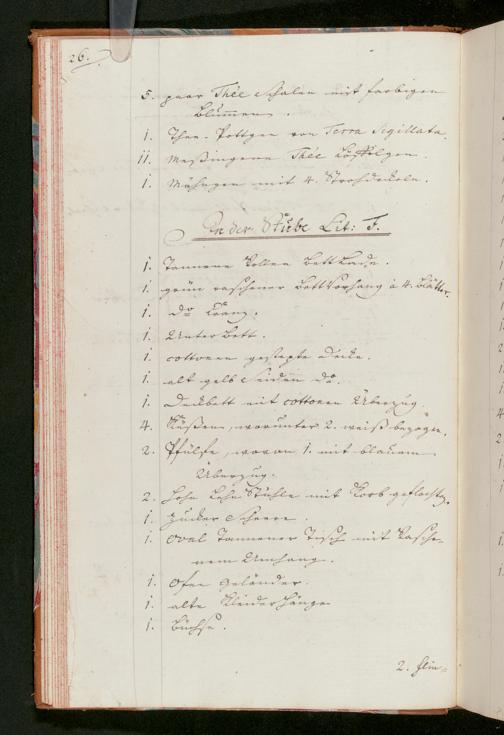 26.
5. paar Thée Schalen mit farbigen
Blummen.
1. Thee-Pottgen von Terra Sigillata.
11. Messingerne Thée Löffelgen.
1. mit 4. Strohdeckeln.
In der Stube Lit: F.
1. Tannene Rollen Bettlade.
1. grün raschener Bettvorhang à 4. Blätter.
1. do Cranz.
1. Unter Bett.
1. cottonene gestepte Decke.
1. alt gelb Seiden do.
1. Deckbett mit cottonen Überzug.
4. Küßene, worunter 2. weiß bezogen.
2. Pfülfe, wovon 1. mit blauem
Überzug.
2. hohe Lehn Stühle mit Korb geflocht.
1. Zucker Scheere.
1. oval Tannener Tisch mit Rasche-
nem Umhang.
1. Ofen Geländer.
1. alte Kleider Hänge
1. Büchse.
2. Flin-